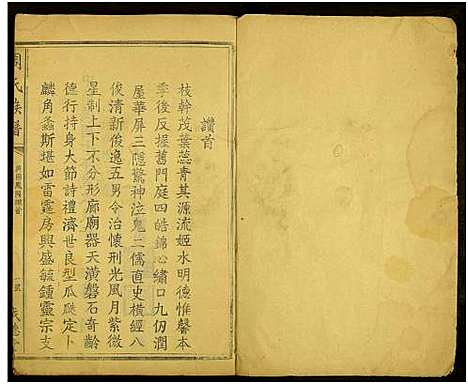 讚首
枝幹茂葉蕊青其源流姬水明德惟馨本
季後反握舊門庭四皓錦心繡口九仞潤
屋華屏三隱驚神泣鬼二儒直史橫經八
俊清新俊逸五男令治懷刑光風月紫微
星制上下不分形廊廟器天潢磐石奇齡
德行持身大節詩禮濟世良型瓜瓞定卜
麟角螽斯堪如雷霆房興盛毓鍾靈宗支
周氏族譜